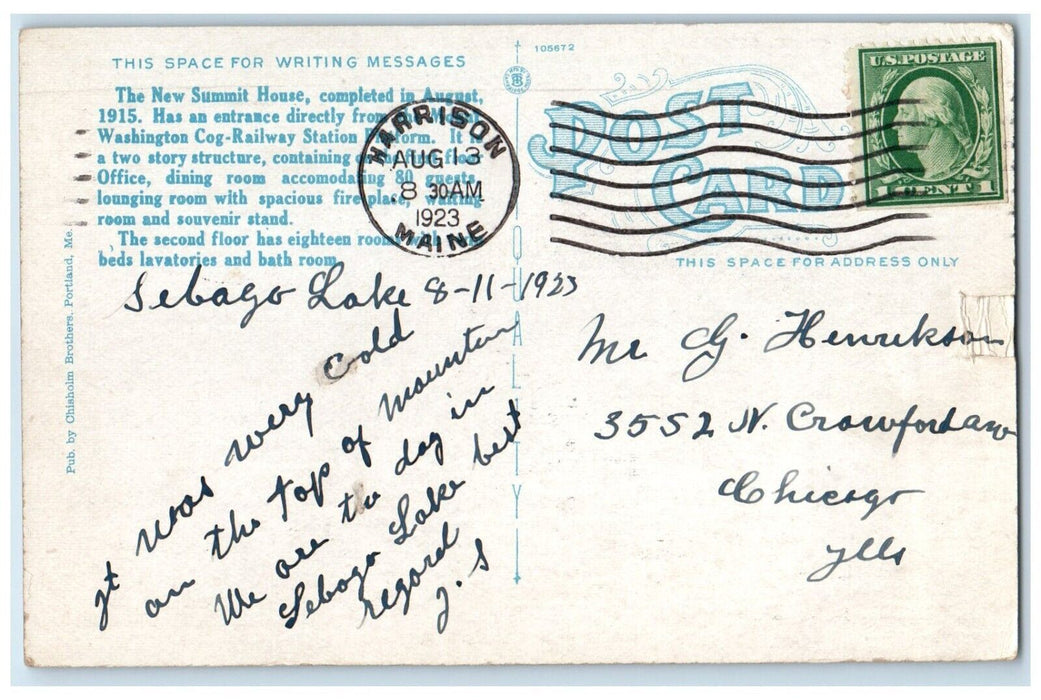 THIS SPACE FOR WRITING MESSAGES
The New Summit House, completed in August,
1915. Has an entrance directly from the
Washington Cog-Railway Station It
a two story structure, containing
Office, dining room accomodating 80 guests,
lounging room with spacious fire place,
room and souvenir stand.
The second floor has eighteen rooms
beds lavatories and bath room.
Pub. by Chisholm Brothers, Portland, Me.
105672
QUALITY
HARRISON
AUG 13
8 30AM
1923
MAINE
POST
CARD
U.S. POSTAGE
1 CENT 1
THIS SPACE FOR ADDRESS ONLY
Sebago Lake 8-11-1923
It was wery cold
on the top of mountain
We are to day in
Sebago Lake best
regard
J. S
Mr G. Henrikson
3552 N. Crawford aw
Chicago
Ills